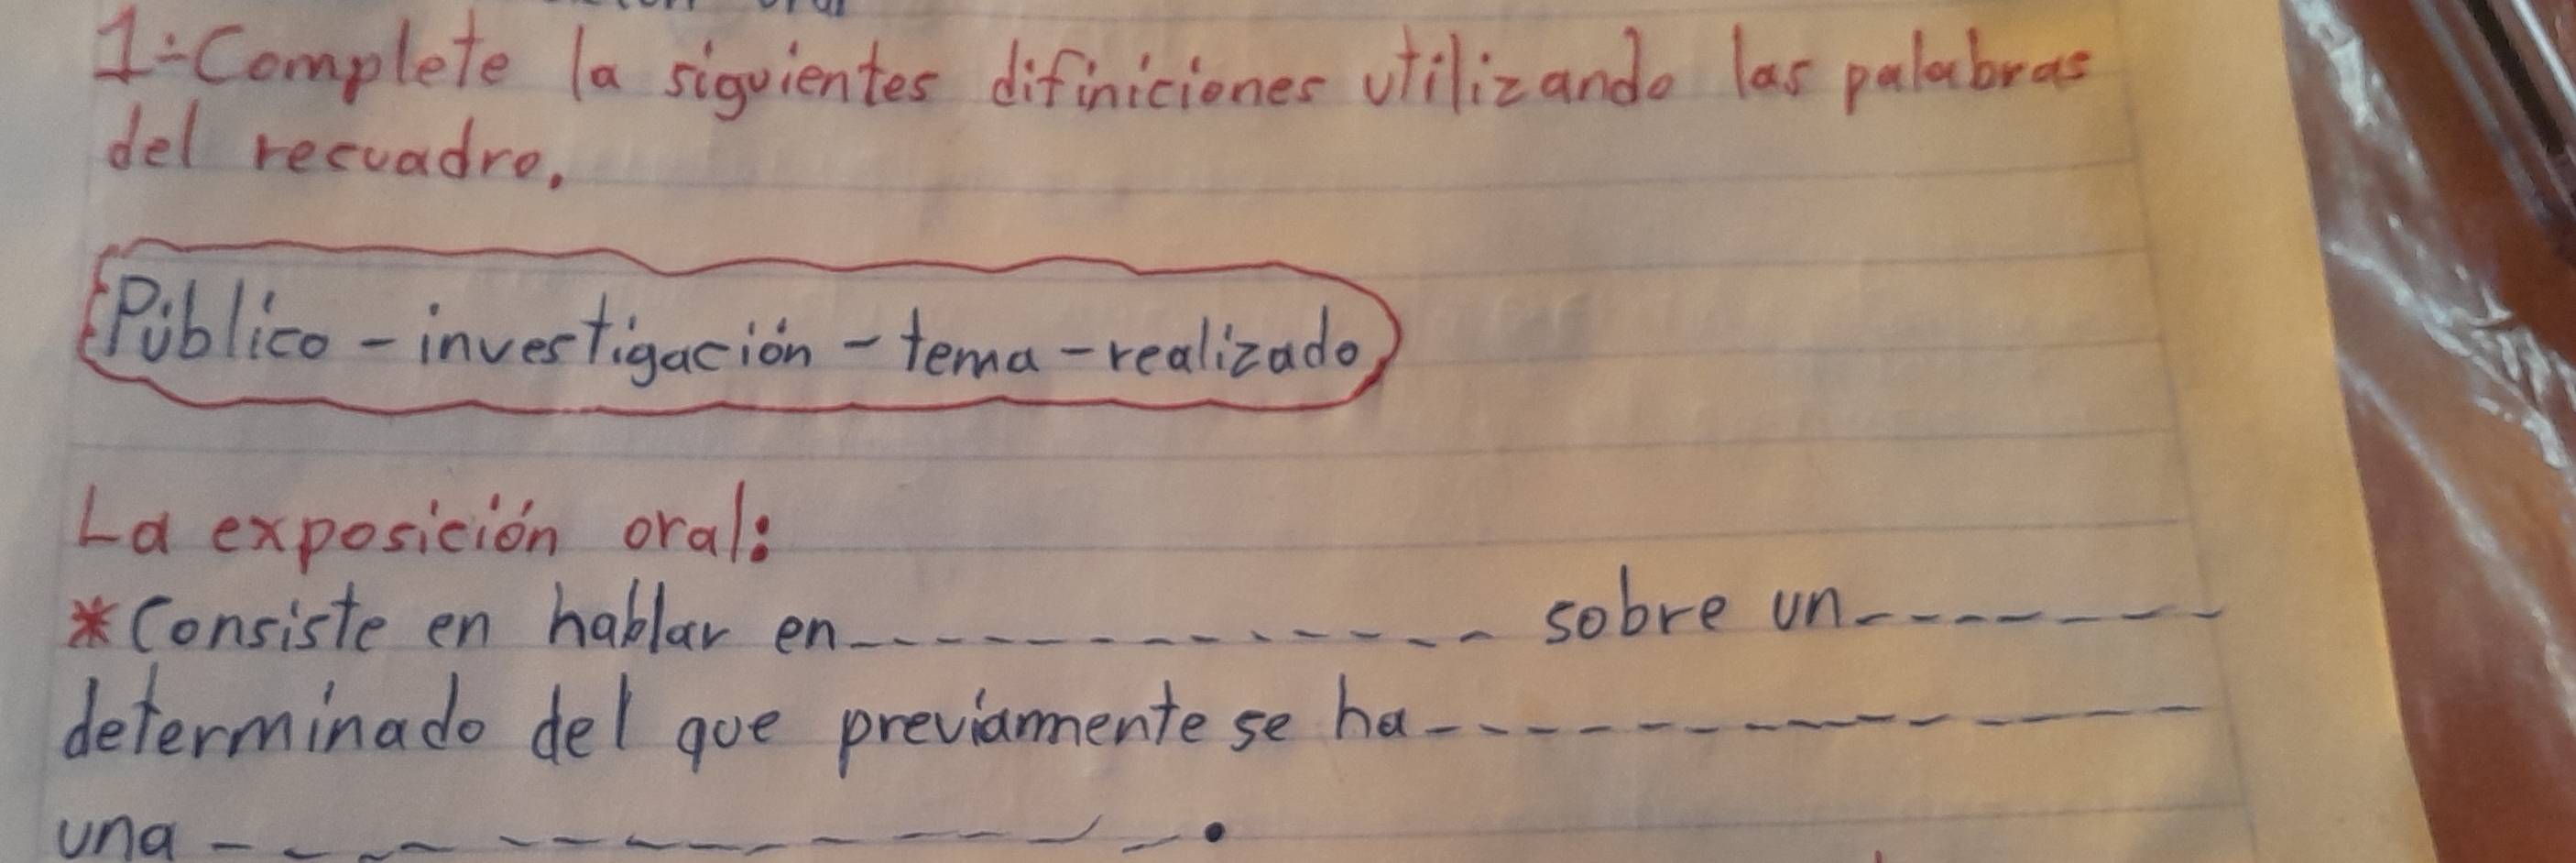 1-Complete la siguientes difiniciones utilizando las palabras
del recuadro.
Público - investigación - tema - realizado
La exposición oral:
*Consiste en hablar en-------------- sobre un--------
determinado del que previamente se ha--------------
una ------------.